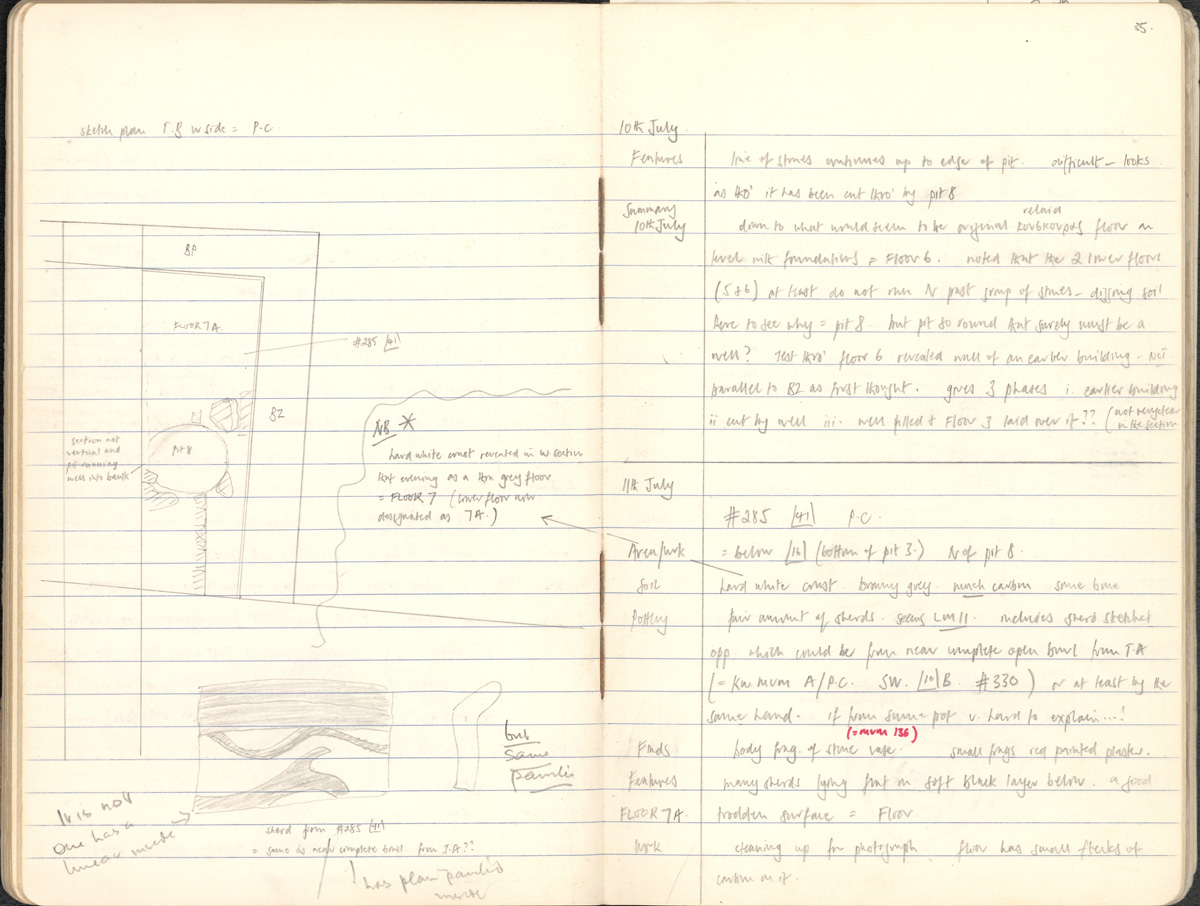 sketch plan T.B W side = P.C
BP
FLOOR 7A.
#285 [41]
B2
Pit 8
section not
vertical and
pit running
well into baulk
NB *
hard white const revealed in W section
that evening as a thin grey floor
= FLOOR 7 (lower floor now
designated as 7A.)
but
same
paintis
It is not
One has a
linear inside
sherd from #285 [41]
= same as near complete bowl from T.A??
! has plain paintis
inside
35.
10th July.
Features line of stones continues up to edge of pit. difficult – looks
as tho' it has been cut thro' by pit 8
Summary
10th July
relaid
down to what would seem to be original κουσκουρας floor on
level with foundations = Floor 6. noted that the 2 lower floors
(5+6) at least do not run N past group of stones – digging soil
here to see why = pit 8. but pit so round that surely must be a
well? Test thro' floor 6 revealed wall of an earlier building – Not
parallel to B2 as first thought. gives 3 phases i. earlier building
ii cut by well iii. well filled & Floor 3 laid over it?? (not very clear
in the section
11th July
#285 [41] P.C.
Area/work = below [16] (bottom of pit 3.) N of pit 8.
Soil hard white const. browny grey. much carbon some bone
Pottery fair amount of sherds. seems LM II. includes sherd sketched
opp. which could be from near complete open bowl from T.A
(= Kn. mvm A/P.C. SW. [10] B. #330) or at least by the
same hand. if from same pot v. hard to explain...!
(= mvm 136)
Finds body frag. of stone vase. small frags red painted plaster.
Features many sherds lying flat in soft black layer below. a good
FLOOR 7A. trodden surface = Floor
Work cleaning up for photograph. floor has small flecks of
carbon on it.